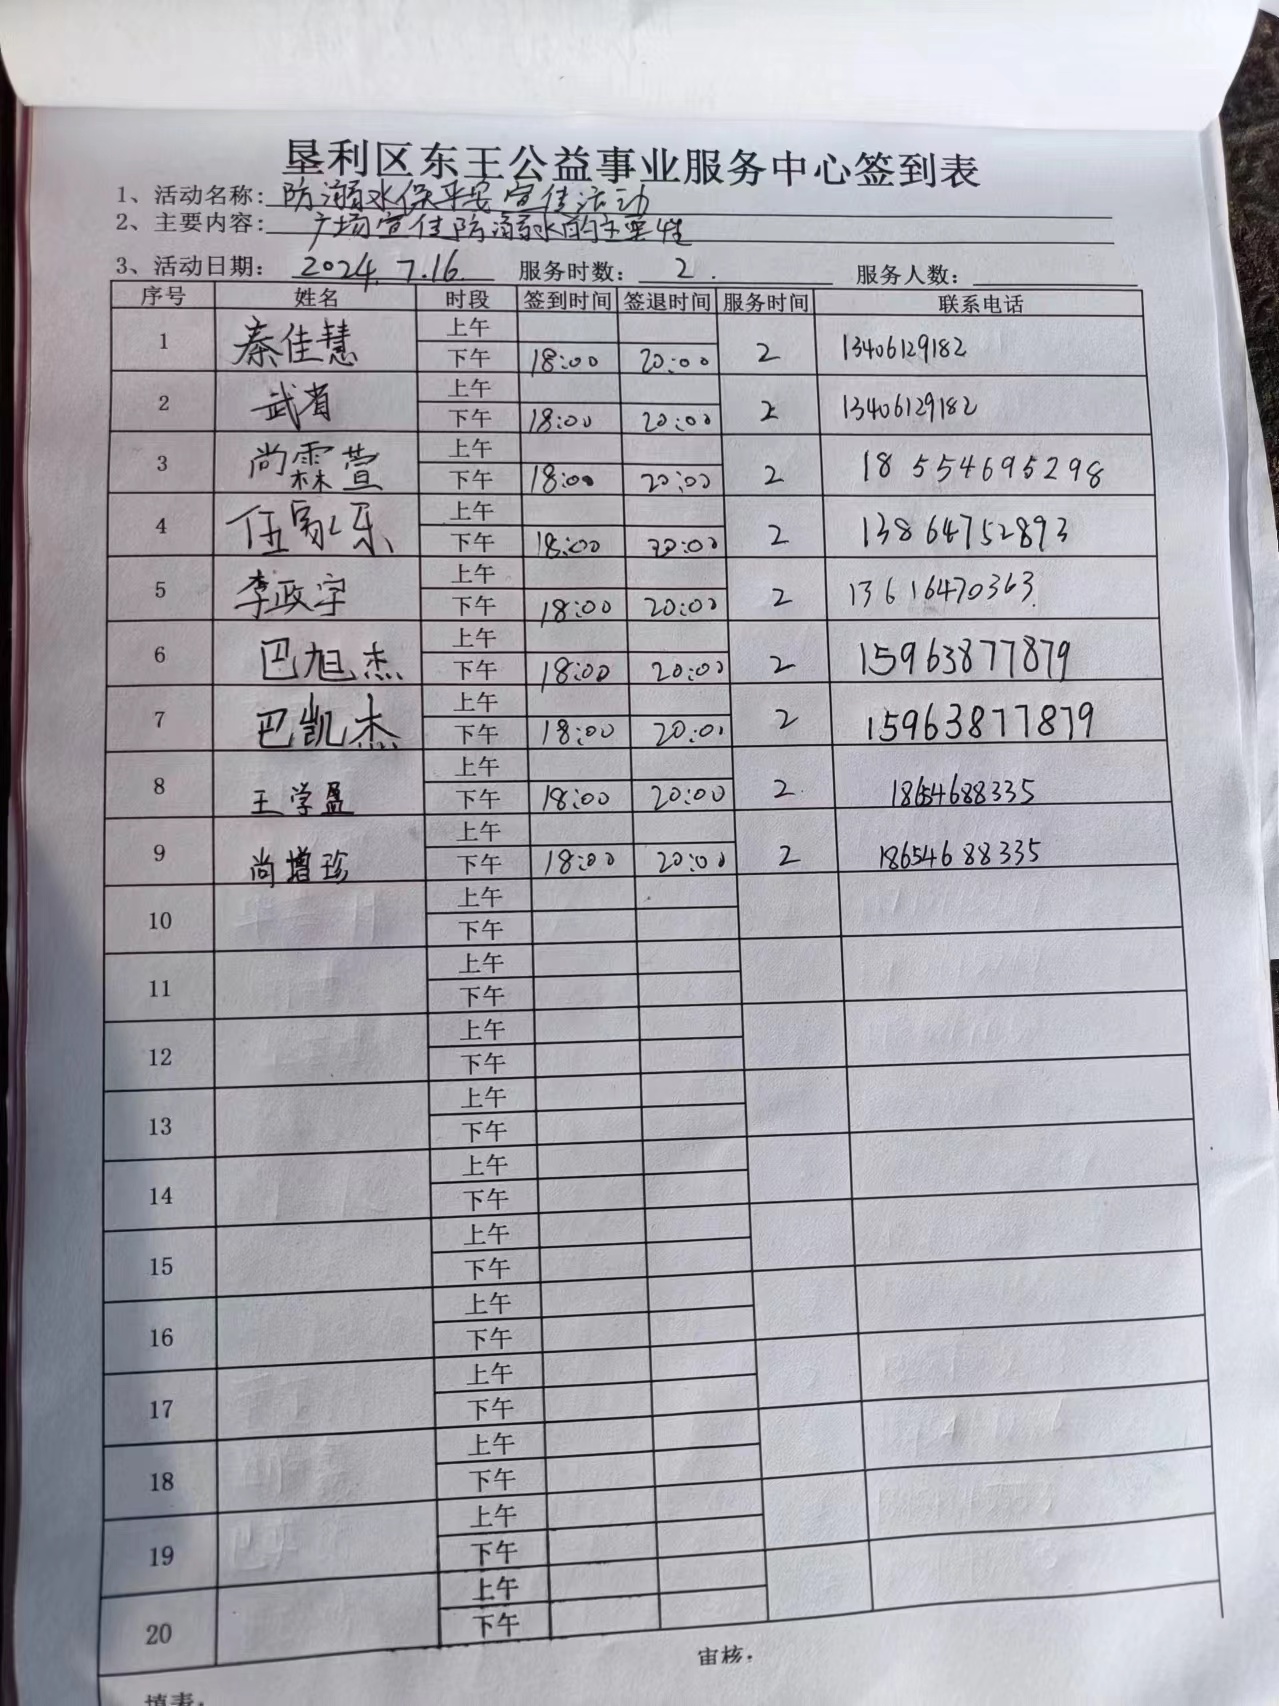 垦利区东王公益事业服务中心签到表
1、活动名称：防溺水保平安宣传活动
2、主要内容：广场宣传防溺水的主要性
3、活动日期：2024.7.16. 服务时数：2. 服务人数：
序号 姓名 时段 签到时间 签退时间 服务时间 联系电话
1 秦佳慧 上午
下午 18:00 20:00 2 13406129182
2 武肖 上午
下午 18:00 20:00 2 13406129182
3 尚霖萱 上午
下午 18:00 20:00 2 18554695298
4 伍家乐 上午
下午 18:00 20:00 2 13864752893
5 李政宇 上午
下午 18:00 20:00 2 13616470363
6 巴旭杰 上午
下午 18:00 20:00 2 15963877879
7 巴凯杰 上午
下午 18:00 20:00 2 15963877879
8 王学盈 上午
下午 18:00 20:00 2 18654688335
9 尚增珍 上午
下午 18:00 20:00 2 18654688335
10 上午
下午
11 上午
下午
12 上午
下午
13 上午
下午
14 上午
下午
15 上午
下午
16 上午
下午
17 上午
下午
18 上午
下午
19 上午
下午
20 上午
下午
填表： 审核：